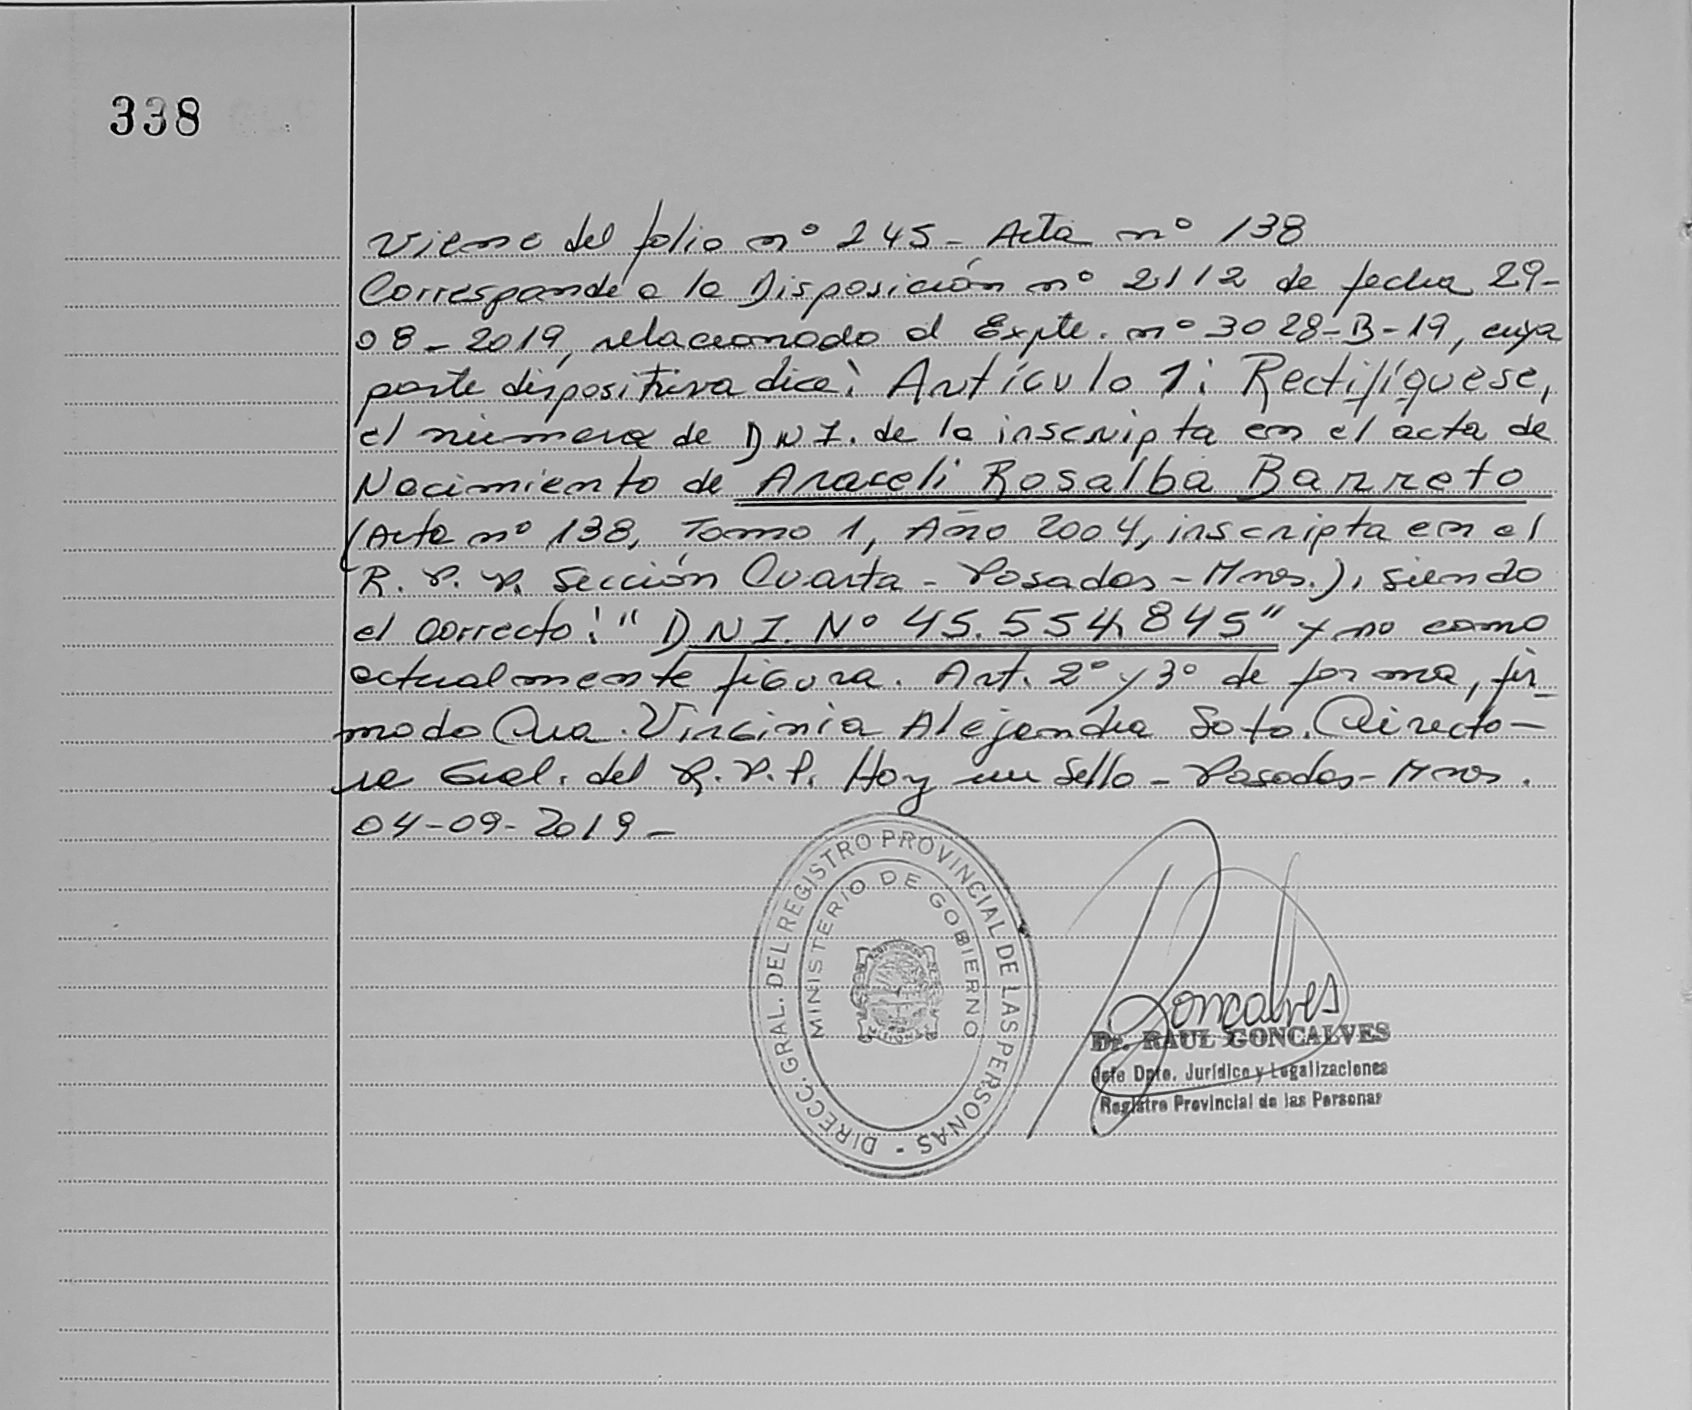 338
Viene del folio nº 245 - Acta nº 138
Corresponde a la Disposición nº 2112 de fecha 29-
08-2019, relacionado al Expte. nº 3028-B-19, cuya
parte dispositiva dice: Artículo 1: Rectifíquese,
el número de DNI. de la inscripta en el acta de
Nacimiento de Araceli Rosalba Barreto
(Acta nº 138, Tomo 1, Año 2004, inscripta en el
R. P. P. Sección Cuarta - Posadas - Mnes.), siendo
el correcto: "DNI. Nº 45.554.845" y no como
actualmente figura. Art. 2º y 3º de forma, fir-
mado Dra. Virginia Alejandra Soto. Directo-
ra Gral. del R.P.P. Hay un Sello - Posadas - Mnes.
04-09-2019 -
DIRECC. GRAL. DEL REGISTRO PROVINCIAL DE LAS PERSONAS -
MINISTERIO DE GOBIERNO
MISIONES
Goncalves
Dr. RAUL GONCALVES
Jefe Dpto. Jurídico y Legalizaciones
Registro Provincial de las Personas